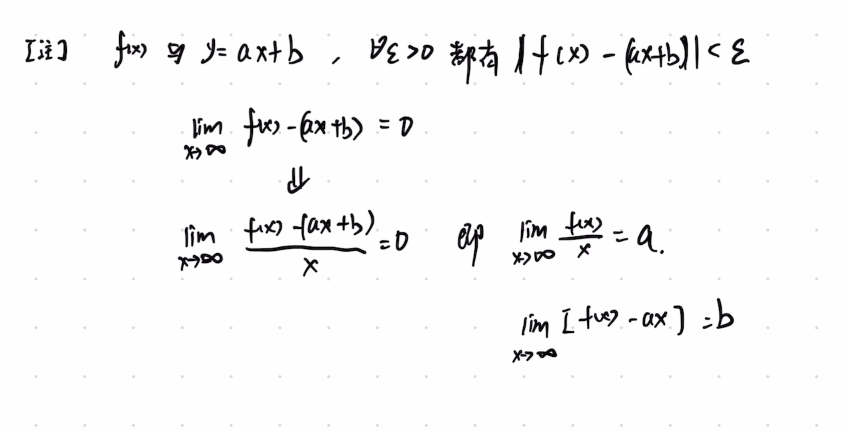 [注] f(x) 与 y=ax+b , ∀ε>0 都有 |f(x)-(ax+b)|<ε
lim x→∞ f(x)-(ax+b)=0
⇓
lim x→∞ f(x)-(ax+b)/x=0 即 lim x→∞ f(x)/x=a.
lim x→∞ [f(x)-ax]=b